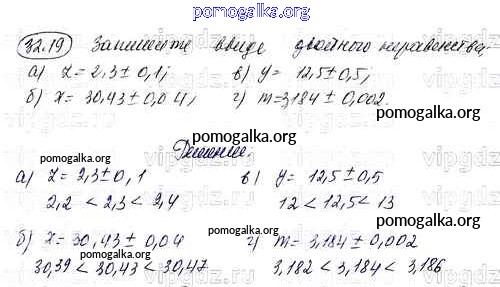 pomogalka.org
32.19 Запишите ввиде двойного неравенства,
pomogalka.org
а) z = 2,3 ± 0,1; в) y = 12,5 ± 0,5;
б) x = 30,43 ± 0,04; г) m = 3,184 ± 0,002.
pomogalka.org pomogalka.org
Решение.
pomogalka.org pomogalka.org
а) z = 2,3 ± 0,1 в) y = 12,5 ± 0,5
2,2 < 2,3 < 2,4 12 < 12,5 < 13
pomogalka.org pomogalka.org
б) x = 30,43 ± 0,04 г) m = 3,184 ± 0,002
30,39 < 30,43 < 30,47 3,182 < 3,184 < 3,186
pomogalka.org pomogalka.org